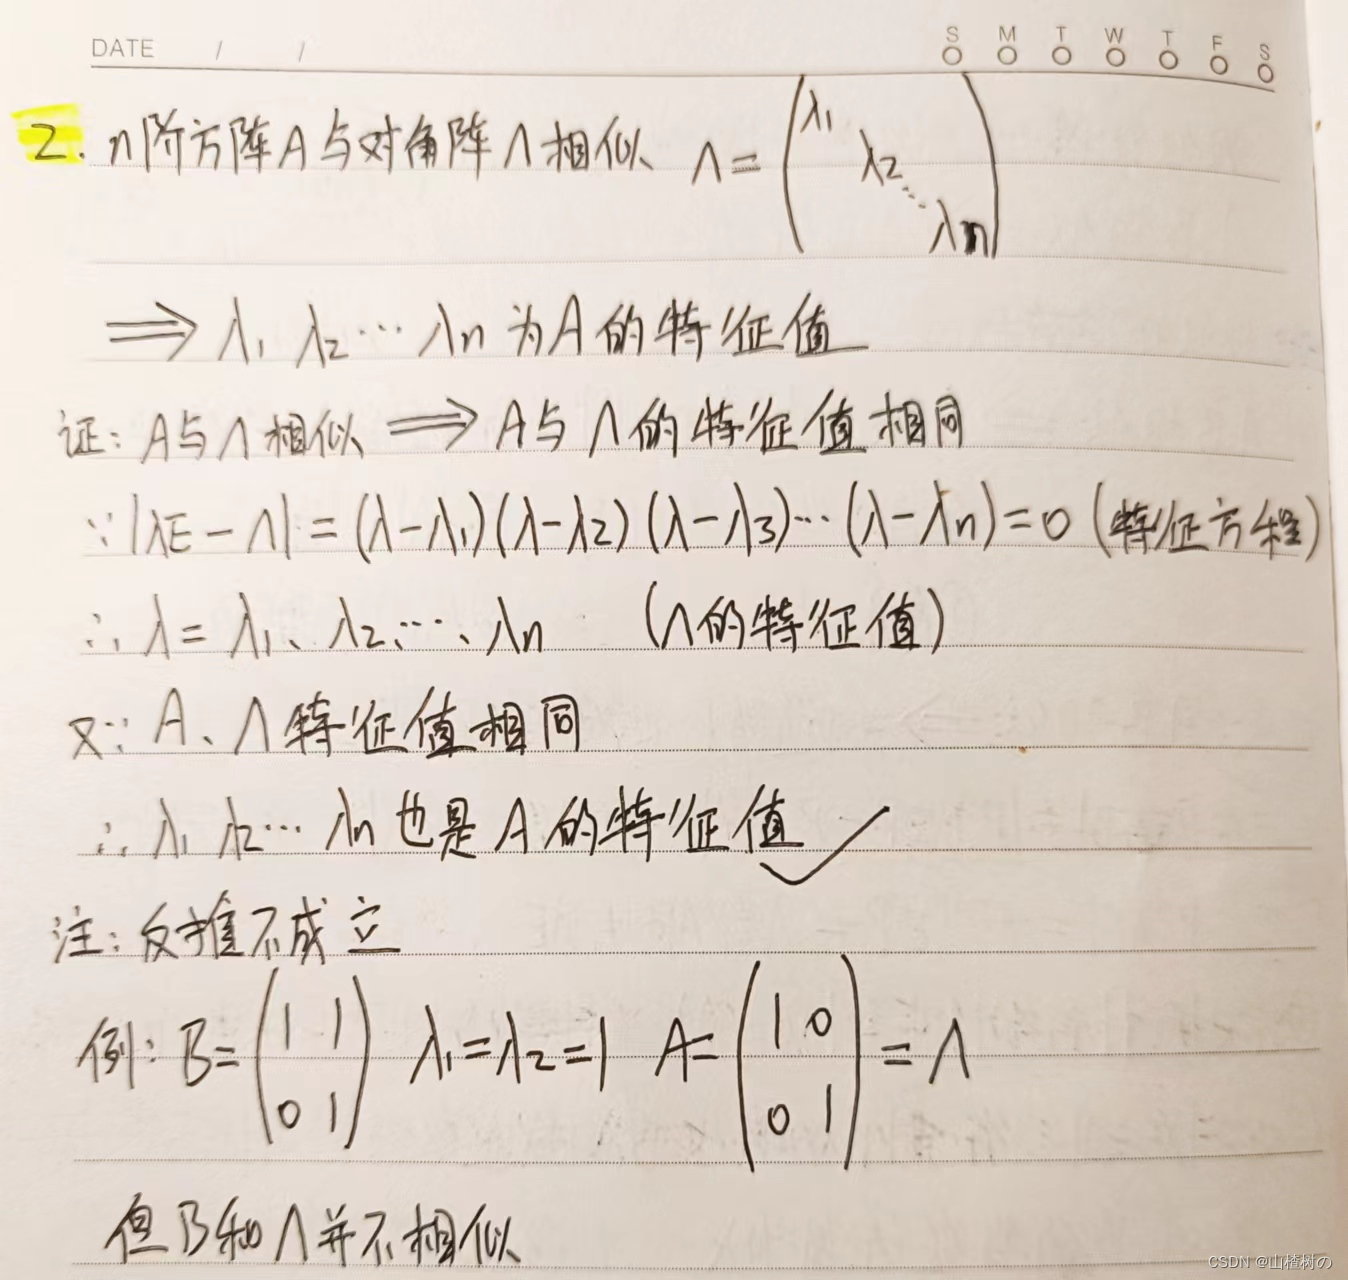 DATE / / S M T W T F S
2. n阶方阵A与对角阵Λ相似 Λ=(λ1 λ2 ⋱ λn)
⟹ λ1 λ2 … λn 为A的特征值
证: A与Λ相似 ⟹ A与Λ的特征值相同
∵|λE-Λ|=(λ-λ1)(λ-λ2)(λ-λ3)…(λ-λn)=0 (特征方程)
∴ λ=λ1、λ2、…、λn (Λ的特征值)
又∵ A、Λ特征值相同
∴ λ1 λ2… λn也是A的特征值 ✓
注: 反推不成立
例: B=(1 1 0 1) λ1=λ2=1 A=(1 0 0 1)=Λ
但B和Λ并不相似
CSDN @山楂树の